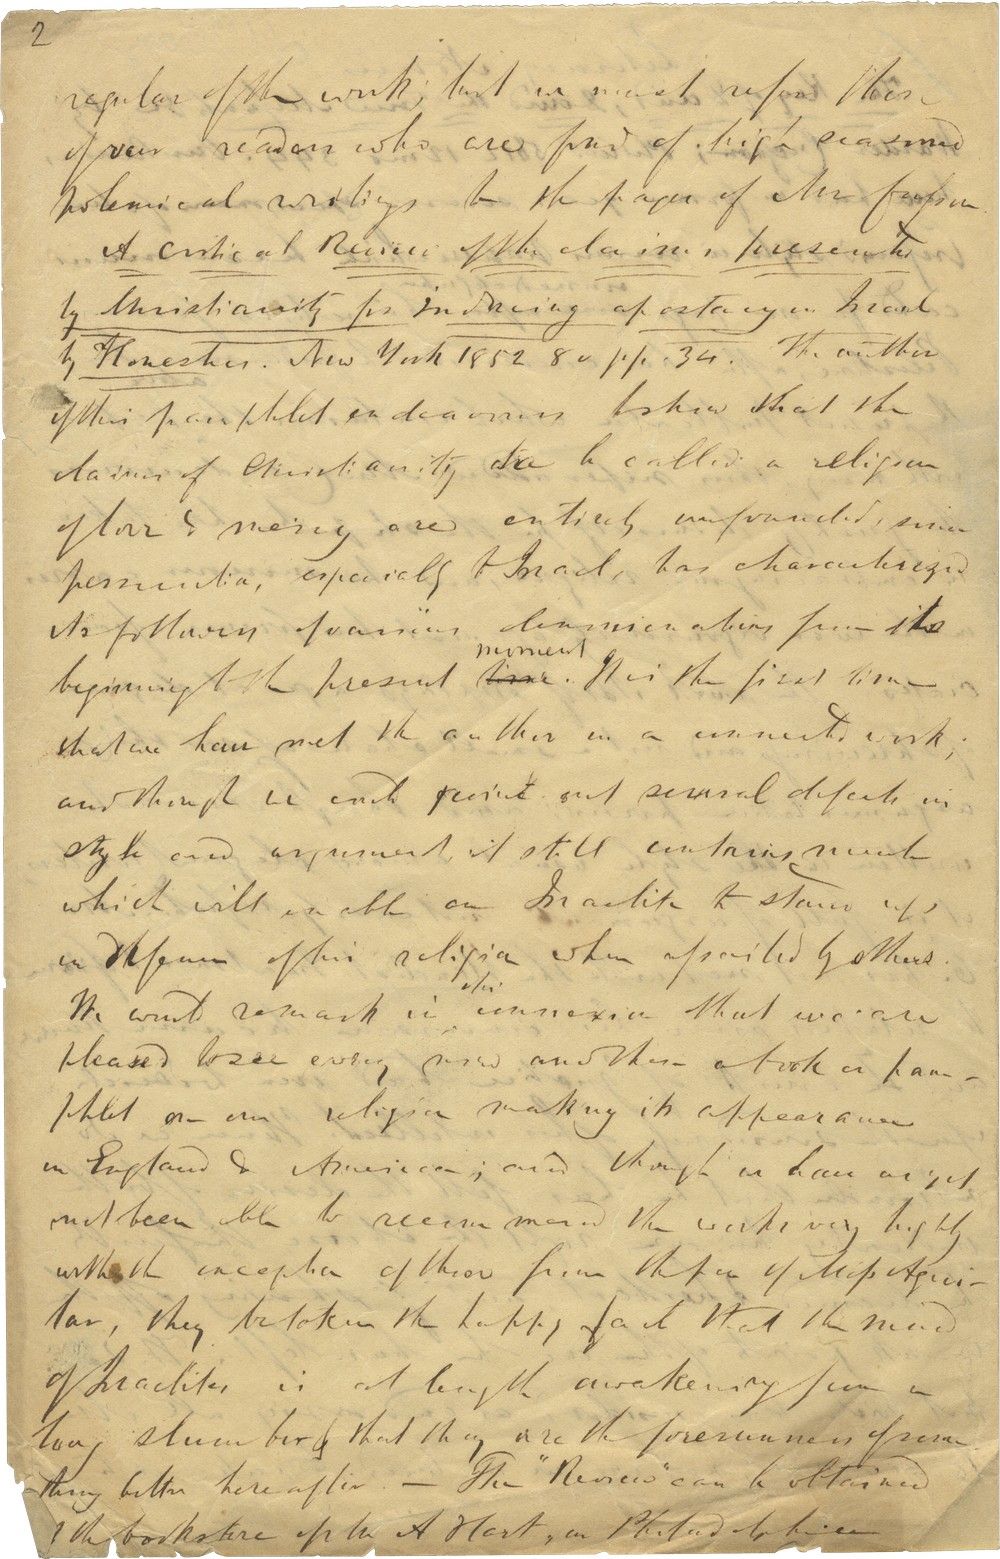 2
regular of the work; but we must refer those
of our readers who are fond of high seasoned
polemical writings to the pages of Mr
A Critical Review of the claims presented
by Christianity for inducing apostacy in Israel
by Honestus. New York 1852 8v pp. 34. The author
of this pamphlet endeavours to show that the
claims of Christianity to be called a religion
of love & mercy are entirely unfounded, since
persecution, especially to Israel, has characterized
its followers of various denominations from its
beginning to the present time moment. It is the first time
that we have met the author in a connected work;
and though we could point out several defects in
style and argument, it still contains much
which will enable an Israelite to stand up
in defence of his religion when assailed by others.
We would remark in this connexion that we are
pleased to see every now and then a book or pam-
phlet on our religion making its appearance
in England & America; and though we have as yet
not been able to recommend the works very highly
with the exception of those from the pen of Miss Agui-
lar, they betoken the happy fact that the mind
of Israelites is at length awakening from a
long slumber & that they are the forerunners of some
thing better hereafter. — The "Review" can be obtained
at the bookstore of the A Hart, in Philadelphia